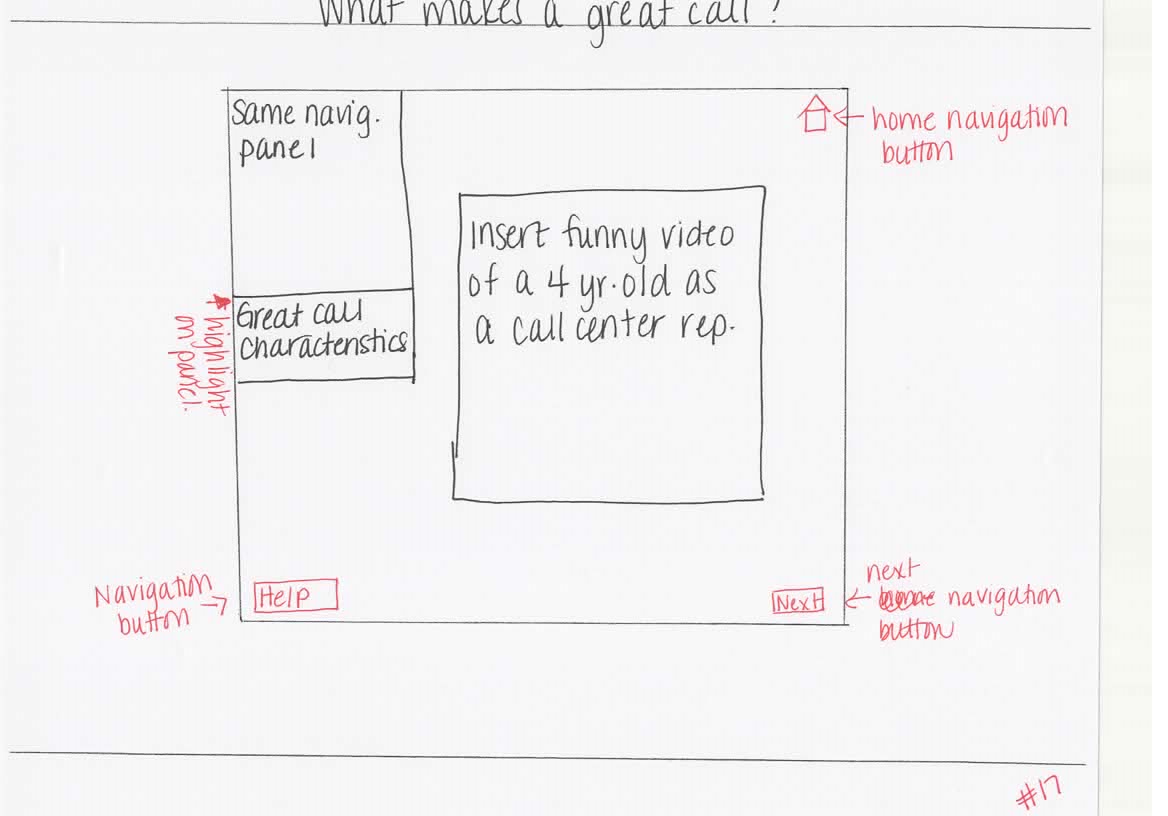 What makes a great call?
Same navig.
panel
home navigation
button
Insert funny video
of a 4 yr. old as
a call center rep.
Great call
Characteristics
highlight
on panel.
Navigation
button
Help
Next
next
navigation
button
#17